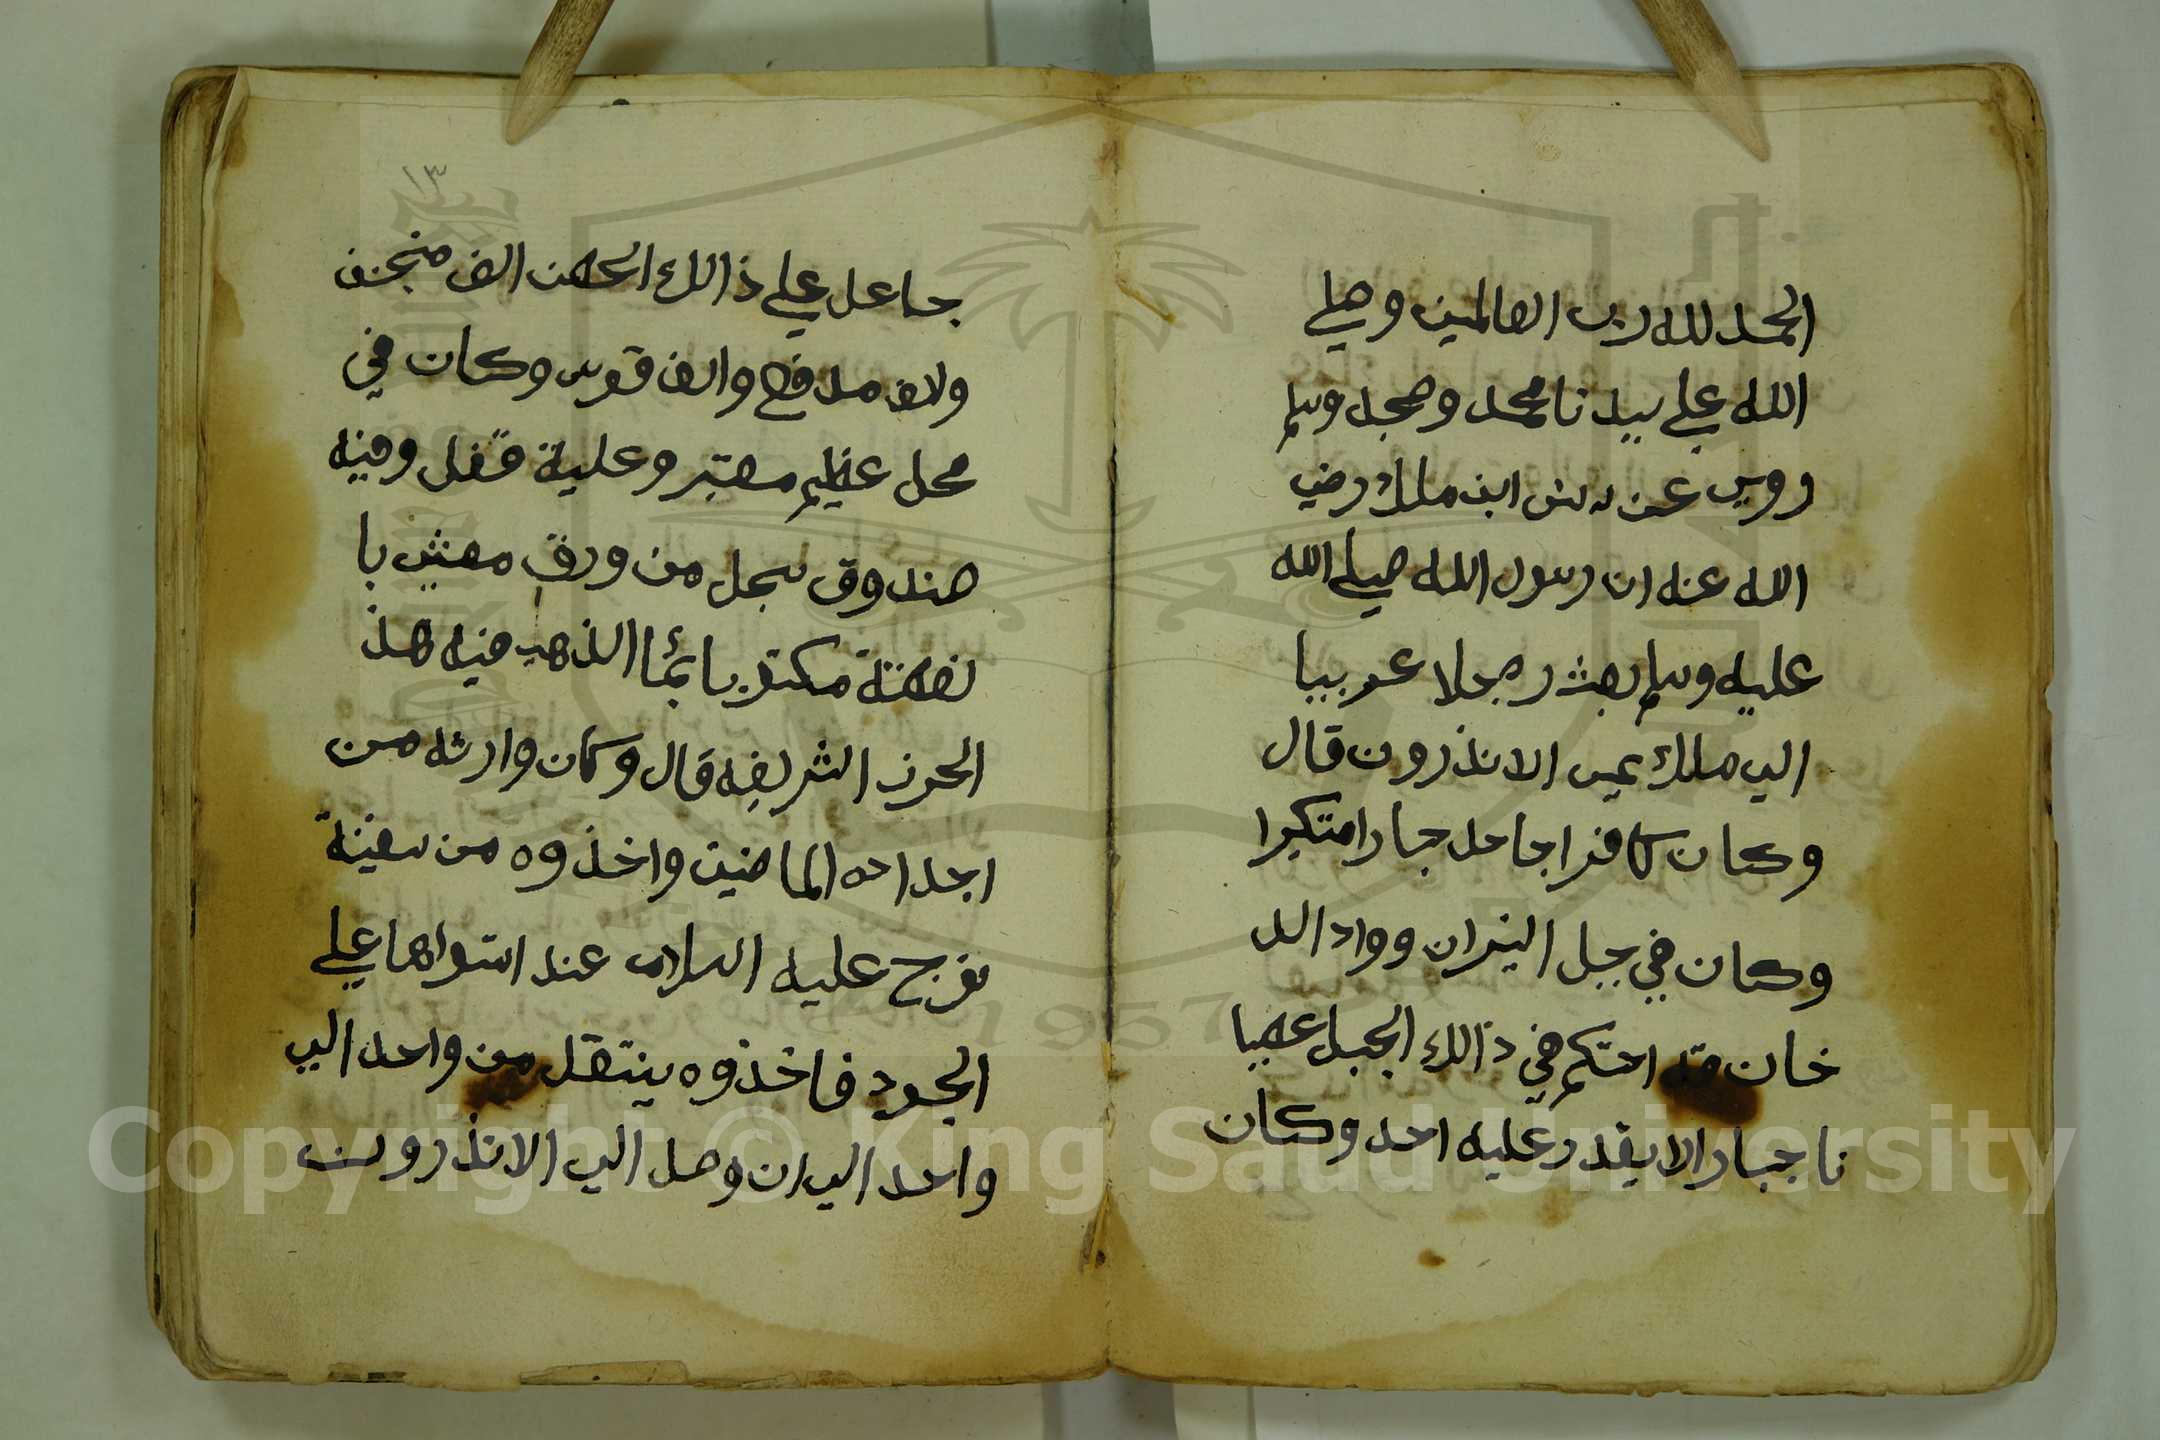 الحمد لله رب العالمين وصلي
الله علي سيدنا محمد وصحبه وسلم
رويي عن انس ابن ملك رضي
الله عنه ان رسول الله صلي الله
عليه وسلم بعث رجلا عربيا
الي ملك الاندرون قال
وكان كافرا جاحد جبارا متكبرا
وكان في جبل النيران وواد الد
خان قد احتكم في ذالك الجبل عصيا
نا جبارا لا يقدر عليه احد وكان
١٣
جاعل علي ذالك الحصن الف منجنف
والف مدفع والف قوس وكان في
محل عظيم معتبر وعلية قفل وفيه
صندوق سجل من ورق مغشي با
لفضة مكتوب بائما الذهب فيه هذ
الحرز الشريفه قال وكان وارثه من
اجداده الماضين واخذوه من سفينة
نوح عليه السلام عند استواها علي
الجودي فاخذوه ينتقل من واحد الي
واحد الي ان وصل الي الاندرون
Copyright © King Saud University
1957